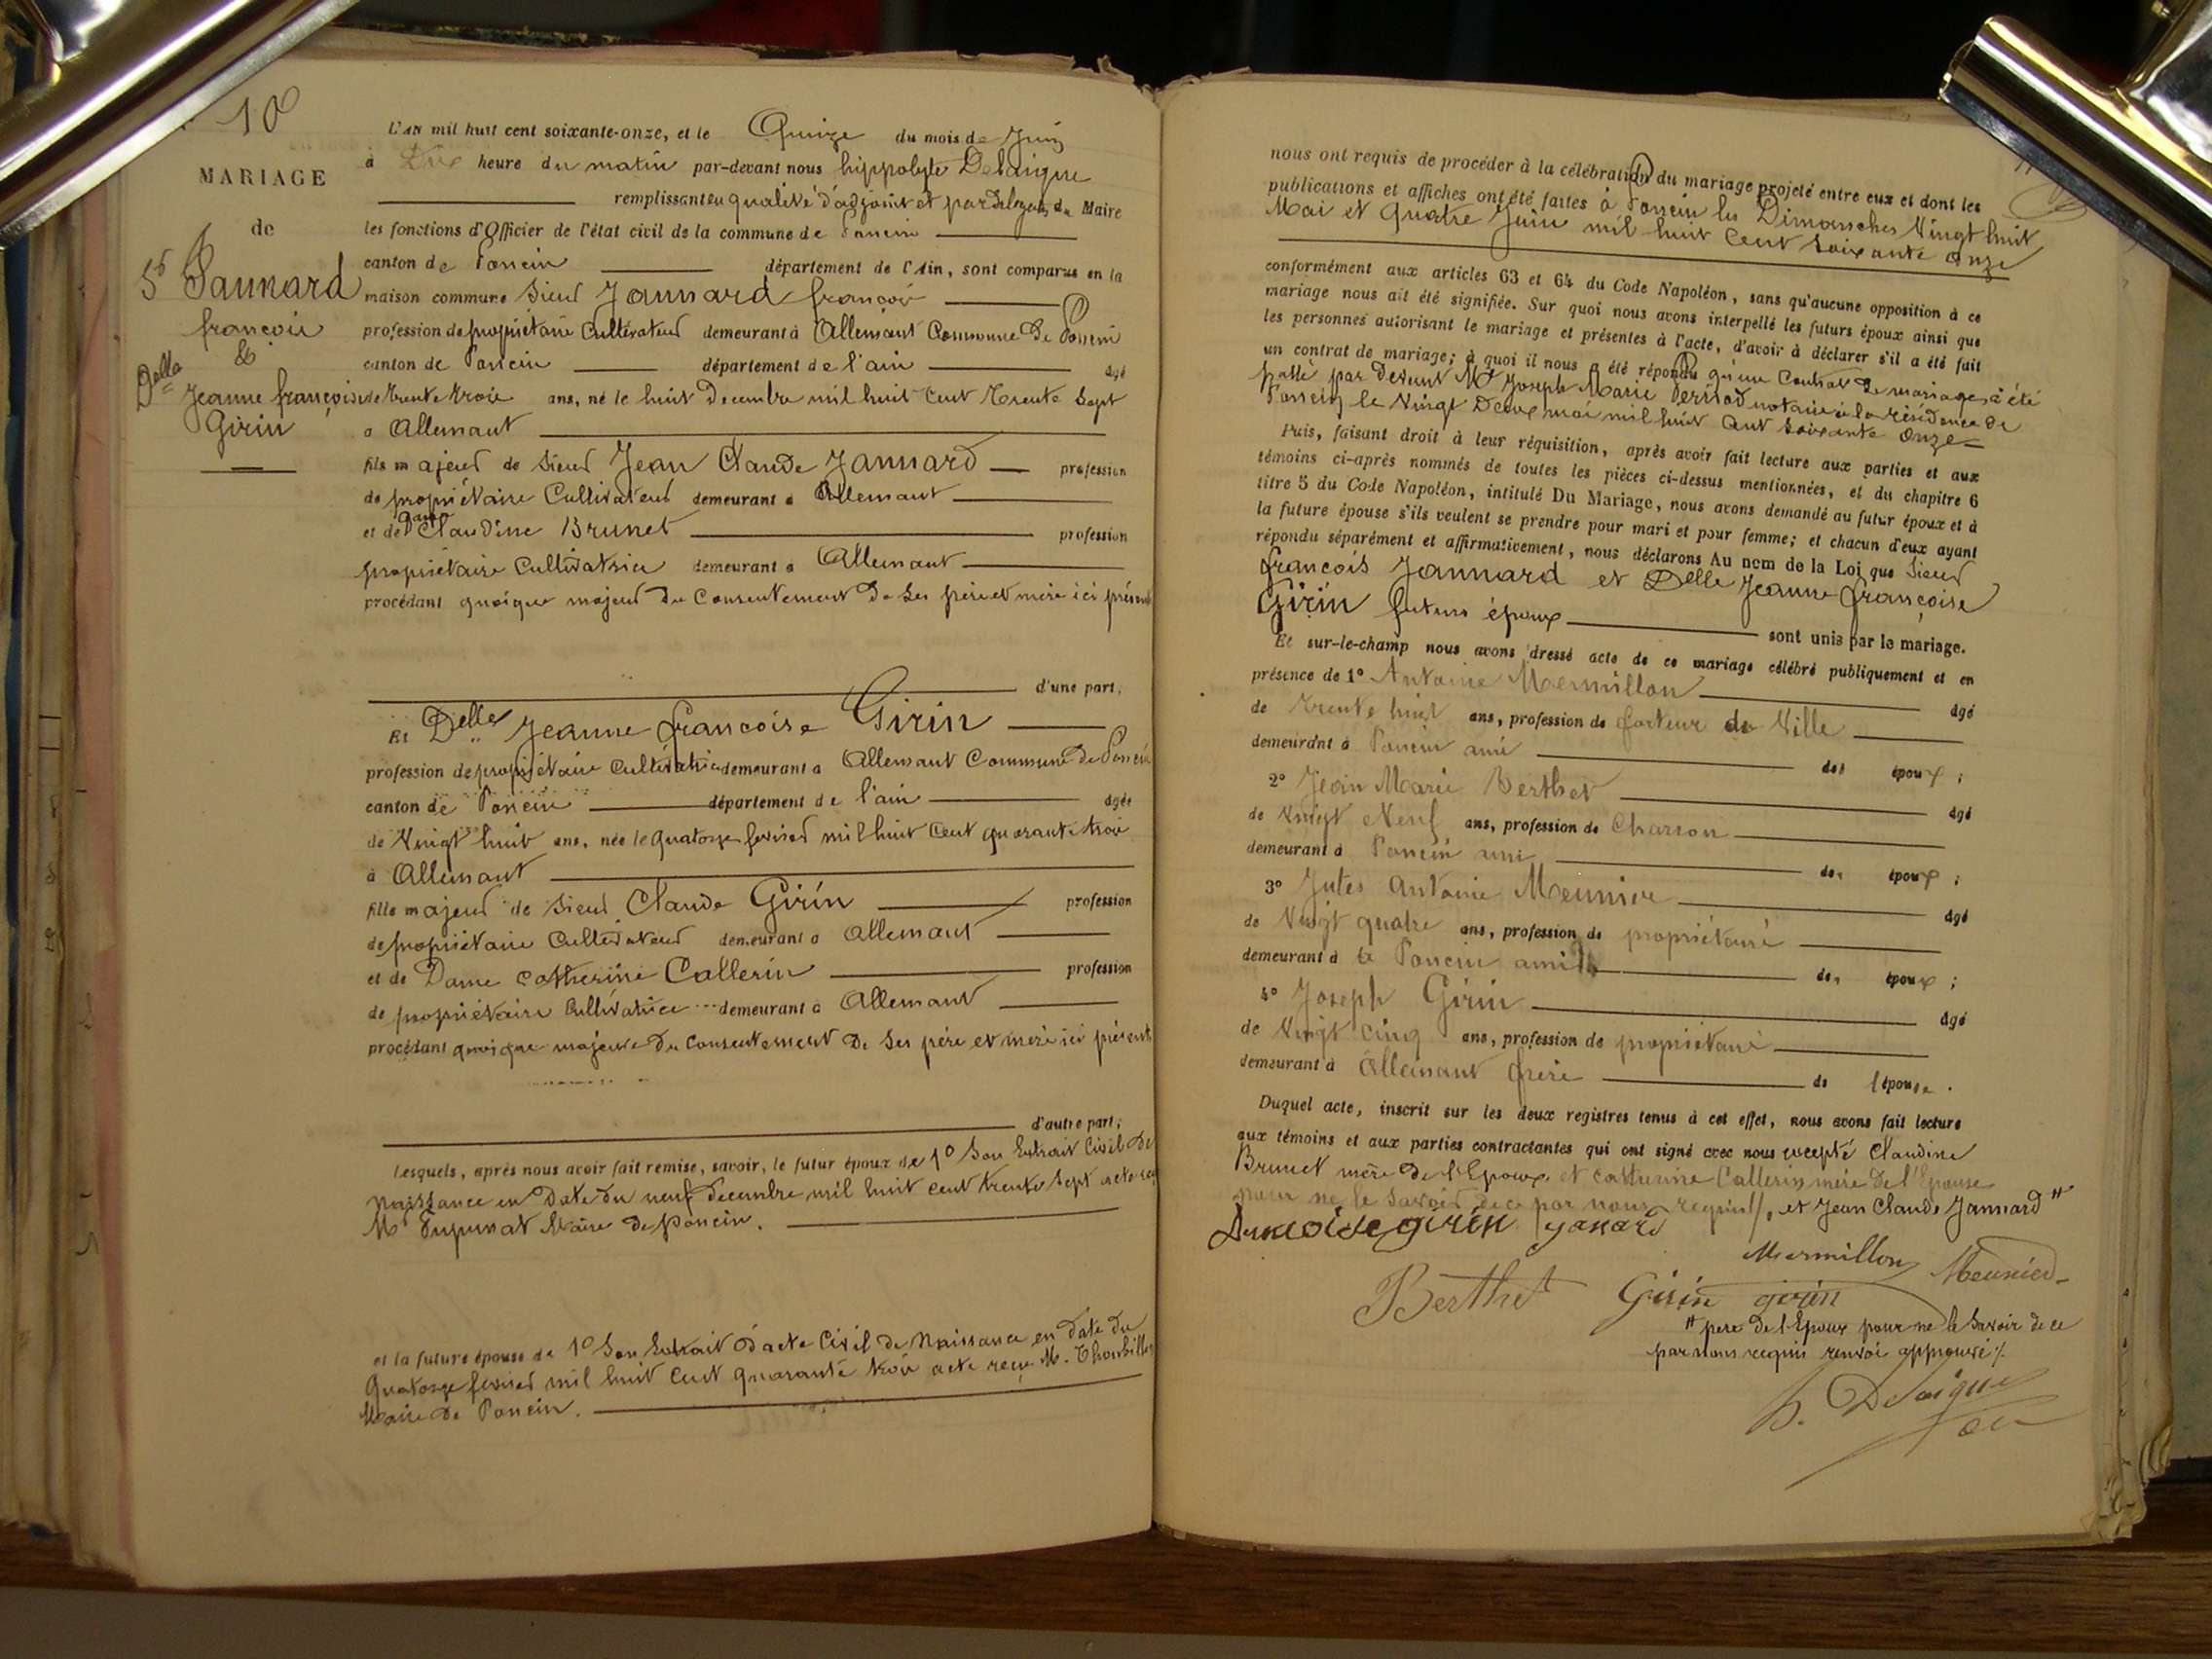 10
MARIAGE
de
Sr Jannard
françois
&
Delle
Jeanne françoise
Girin
L'an mil huit cent soixante-onze, et le Quinze du mois de Juin
à heure du matin par-devant nous hippolyte Delaigue
remplissant en qualité d'adjoint et par délégation du Maire
les fonctions d'Officier de l'état civil de la commune de Poncin
canton de Poncin département de l'Ain, sont comparus en la
maison commune Sieur Jannard françois
profession de propriétaire Cultivateur demeurant à Allemant Commune De Poncin
canton de Poncin département de l'ain âgé
de trente trois ans, né le huit Decembre mil huit Cent Trente Sept
à Allemant
fils majeur de Sieur Jean Claude Jannard profession
de propriétaire Cultivateur demeurant à Allemant
et de Dame Claudine Brunet profession
propriétaire Cultivatrice demeurant à Allemant
procédant quoique majeur du Consentement De Ses père et mère ici présents
d'une part,
Et Delle Jeanne françoise Girin
profession de propriétaire Cultivatrice demeurant à Allemant Commune De Poncin
canton de Poncin département de l'ain âgée
de Vingt huit ans, née le quatorze fevrier mil huit Cent quarante trois
à Allemant
fille majeur de Sieur Claude Girin profession
de propriétaire Cultivateur demeurant à Allemant
et de Dame Catherine Callerin profession
de propriétaire Cultivatrice demeurant à Allemant
procédant quoique majeure du Consentement De Ses père et mère ici présents
d'autre part;
Lesquels, après nous avoir fait remise, savoir, le futur époux de 1o Son Extrait Civil De
Naissance en Date du neuf decembre mil huit cent trente Sept acte reçu
Mr Maire De Poncin.
et la future épouse de 1o Son Extrait D'acte Civil De Naissance en date du
Quatorze fevrier mil huit Cent quarante trois acte reçu M.
Maire De Poncin.
nous ont requis de procéder à la célébration du mariage projeté entre eux et dont les
publications et affiches ont été faites à Poncin les Dimanches Vingt huit
Mai et Quatre Juin mil huit Cent Soixante onze
conformément aux articles 63 et 64 du Code Napoléon, sans qu'aucune opposition à ce
mariage nous ait été signifiée. Sur quoi nous avons interpellé les futurs époux ainsi que
les personnes autorisant le mariage et présentes à l'acte, d'avoir à déclarer s'il a été fait
un contrat de mariage; à quoi il nous a été répondu qu'un Contrat De mariage a été
passé par Devant Me Joseph Marie notaire à la résidence De
Poncin le Vingt Deux mai mil huit Cent Soixante Onze
Puis, faisant droit à leur réquisition, après avoir fait lecture aux parties et aux
témoins ci-après nommés de toutes les pièces ci-dessus mentionnées, et du chapitre 6
titre 5 du Code Napoléon, intitulé Du Mariage, nous avons demandé au futur époux et à
la future épouse s'ils veulent se prendre pour mari et pour femme; et chacun d'eux ayant
répondu séparément et affirmativement, nous déclarons Au nom de la Loi que Sieur
françois Jannard et Delle Jeanne françoise
Girin futurs époux sont unis par le mariage.
Et sur-le-champ nous avons dressé acte de ce mariage célébré publiquement et en
présence de 1o Antoine Mermillon âgé
de Trente huit ans, profession de facteur de Ville
demeurant à Poncin ami des époux;
2o Jean Marie Berthet âgé
de Vingt Neuf ans, profession de Charron
demeurant à Poncin ami des époux;
3o Jules Antoine Meunier âgé
de Vingt quatre ans, profession de propriétaire
demeurant à Poncin ami des époux;
4o Joseph Girin âgé
de Vingt Cinq ans, profession de propriétaire
demeurant à Allemant frère de l'épouse.
Duquel acte, inscrit sur les deux registres tenus à cet effet, nous avons fait lecture
aux témoins et aux parties contractantes qui ont signé avec nous excepté Claudine
Brunet mère De l'Epoux et Catherine Callerin mère De l'Epouse
pour ne le Savoir De ce par nous requis, et Jean Claude Jannard #
françoise girin Janard
Mermillon Meunier
Berthet Girin girin
# père De l'Epoux pour ne le Savoir de ce
par nous requis renvoi approuvé
h. Delaigue